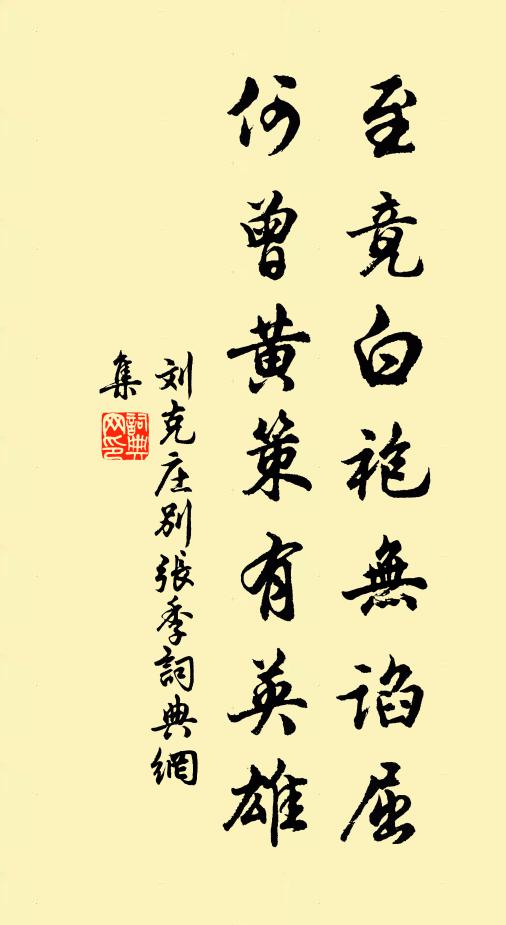 至竟白袍無谄屈
何曾黄策有英雄
刘克庄别張季詞典網
集
詞典
网印